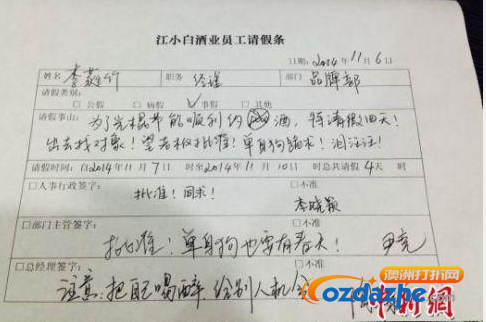 江小白酒业员工请假条
日期：2014年11月6日
姓名 李 竹 职务 经理 部门 品牌部
请假类别：
□公假 □病假 √事假 □其他
请假事由：为了光棍节能顺利约 酒，特请假四天！
出去找对象！望各 批准！单身狗跪求！泪汪汪！
请假时间：自2014年11月7日 时至2014年11月10日 时总共请假4天 时
□人事行政签字： □不准
批准！同求！ 李晓颖
□部门主管签字： □不准
批准！单身狗也要有春天！ 尹亮
□总经理签字： □不准
注意：把自己喝醉，给别人机会
澳洲打折网
ozdazhe.com
中新網